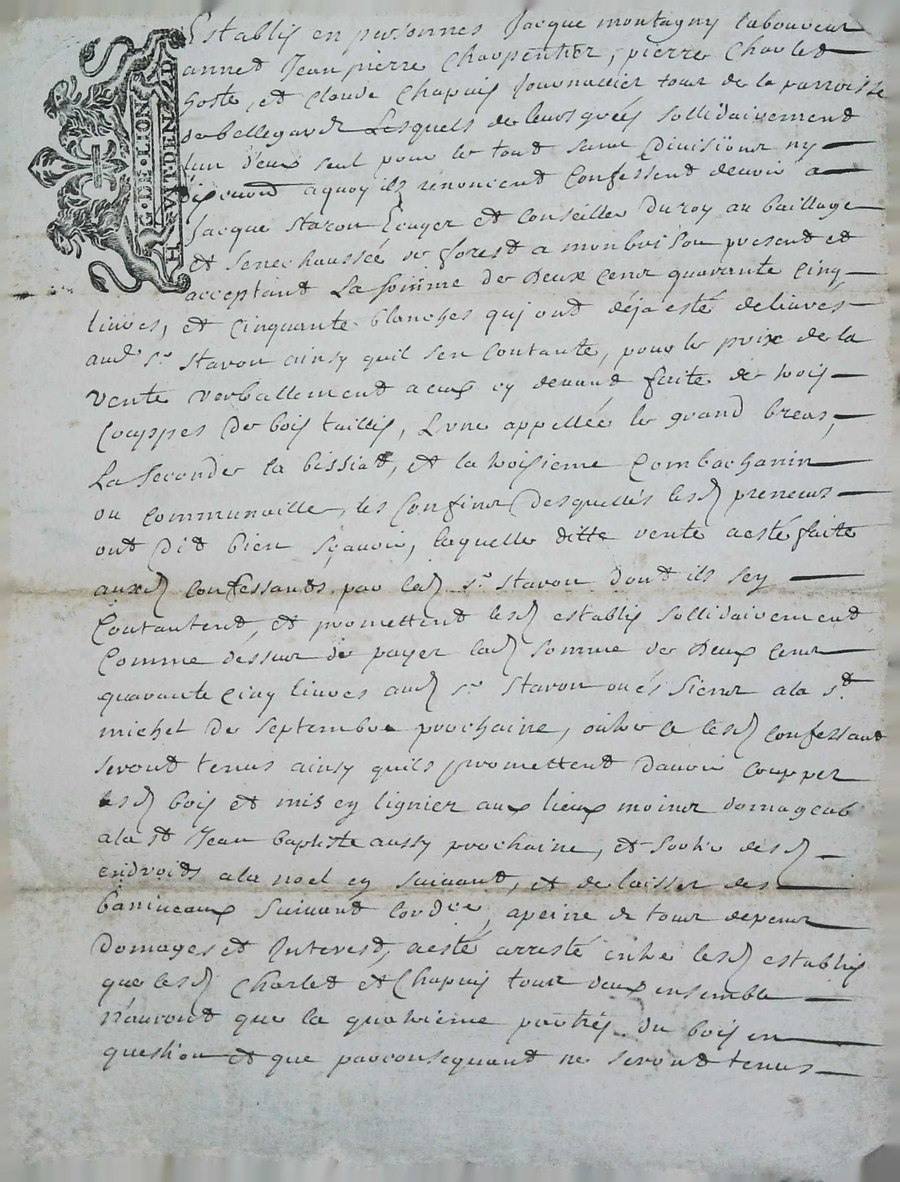 G. DE LION
H VIT. DEN. AD
Establis en personnes Jacque montagny laboureur
annet Jean pierre Charpentier, pierre Charlet
goste, et Claude Chapuis Journallier tour de la parroisse
de bellegarde Lesquels de leurs grées sollidairement
lun deux seul pour le tout sans Divisions ny
a quoy ils renoncent Confessent devoir a
Jacque Staron Ecuyer et Conseiller Du roy au bailliage
et Senechaussée de forest a monbrison present et
acceptant La somme de Deux Cens quarante Cinq
livres, et Cinquante blanches qui ont déja esté delivrés
aud sr. Staron ainsy quil sen Contante, pour le prix de la
vente verballement a eux cy devant faite de trois
Couppes De bois taillis, Lune appellée le grand breas,
La Seconde la bissiat, et la troisieme Combachanin
ou Communaille, les Confins Desquelles lesd preneurs
ont Dit bien sçavoir, laquelle ditte vente a esté faite
auxd Confessants par led sr. Staron Dont ils sen
Contantent, et promettent lesd establis sollidairement
Comme dessus de payer lad somme de Deux Cens
quarante Cinq livres aud sr. Staron ou és siens a la st.
michel De Septembre prochaine, outre ce lesd confessant
seront tenus ainsy quils promettent Davoir Coupper
lesd bois et mis en lignier aux lieux moins domageab
a la st Jean baptiste aussy prochaine, et sortir desd
endroits a la noel en suivant, et de laisser des
baniveaux suivant lordce, a peine de tous depens
Domages et Interest, a esté arresté entre lesd establis
que lesd Charlet et Chapuis tous deux ensemble
n'auront que la quatrieme partie du bois en
question et que par consequant ne seront tenus